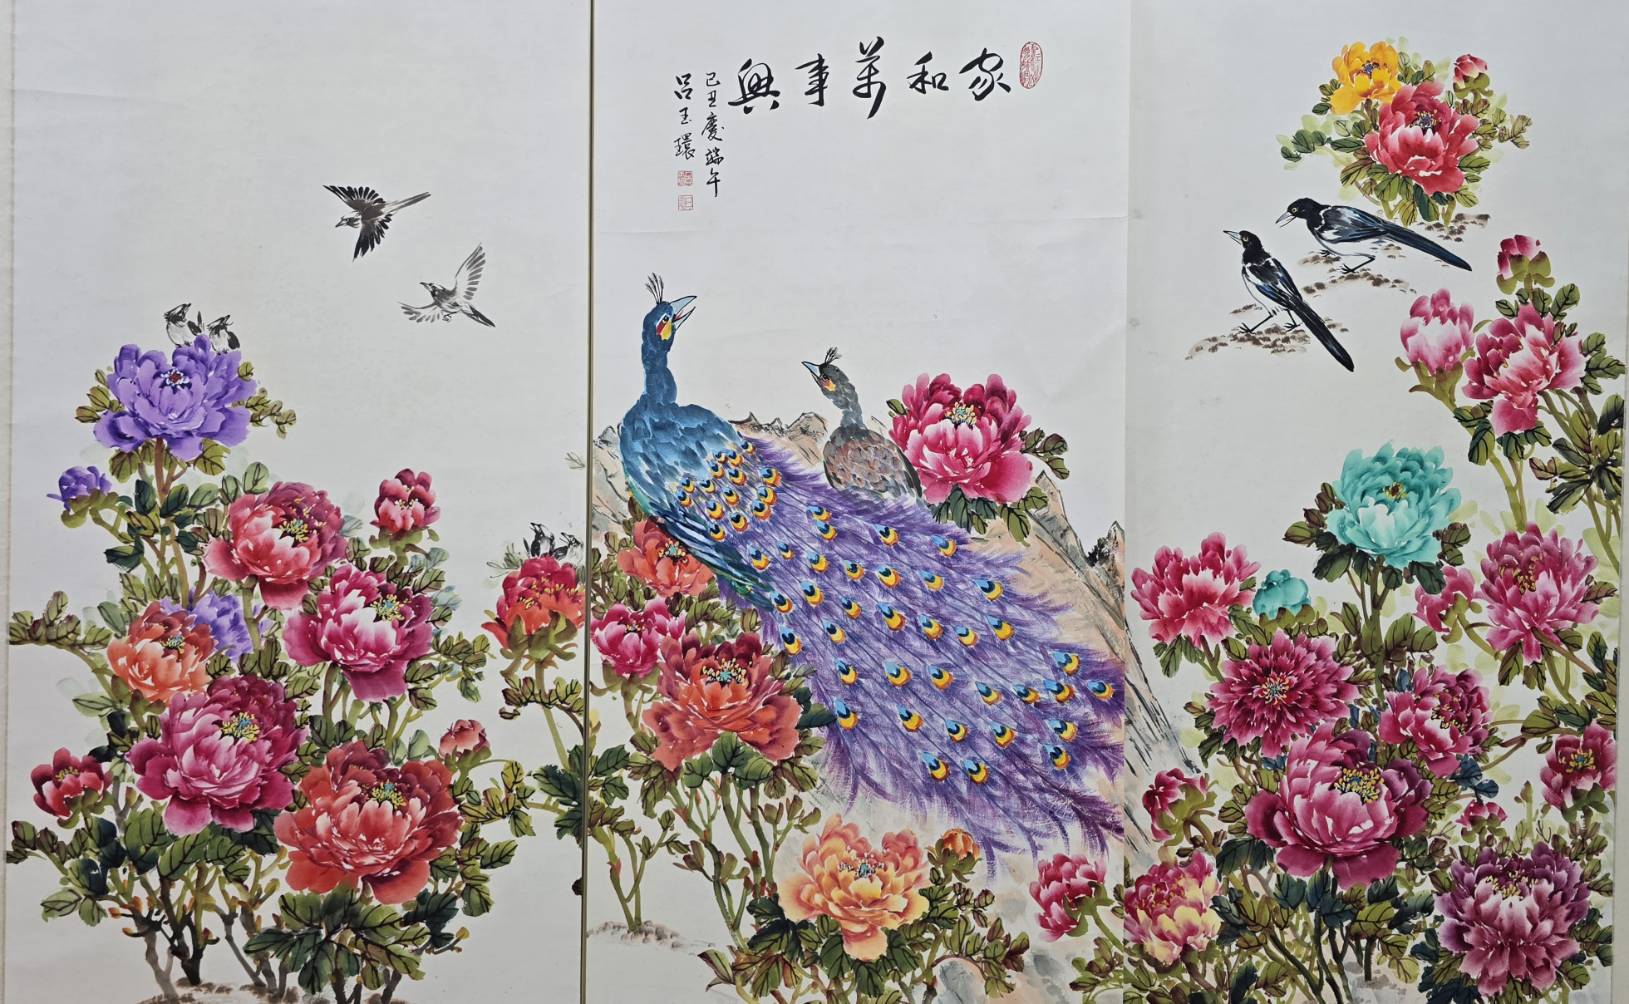 家和萬事興
己丑慶端午
呂玉環